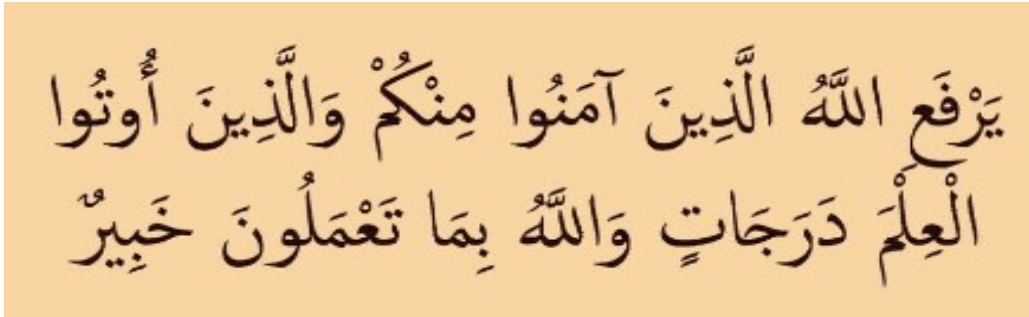 يَرْفَعِ اللَّهُ الَّذِينَ آمَنُوا مِنْكُمْ وَالَّذِينَ أُوتُوا
الْعِلْمَ دَرَجَاتٍ وَاللَّهُ بِمَا تَعْمَلُونَ خَبِيرٌ